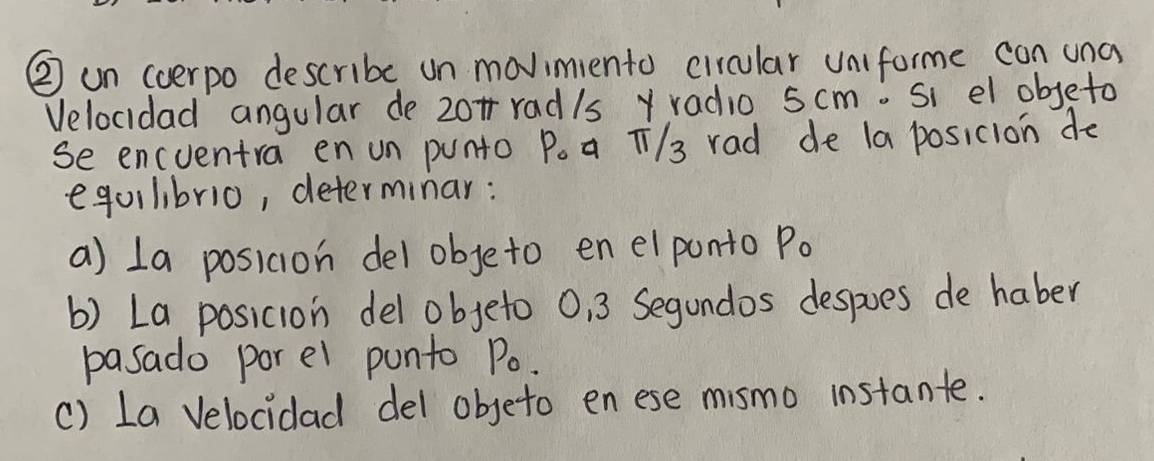 ② un cuerpo describe un movimiento circular uniforme con una
Velocidad angular de 20π rad/s y radio 5 cm. Si el objeto
se encuentra en un punto P₀ a π/3 rad de la posición de
equilibrio, determinar:
a) La posición del objeto en el punto P₀
b) La posición del objeto 0,3 Segundos despues de haber
pasado por el punto P₀.
c) La Velocidad del objeto en ese mismo instante.